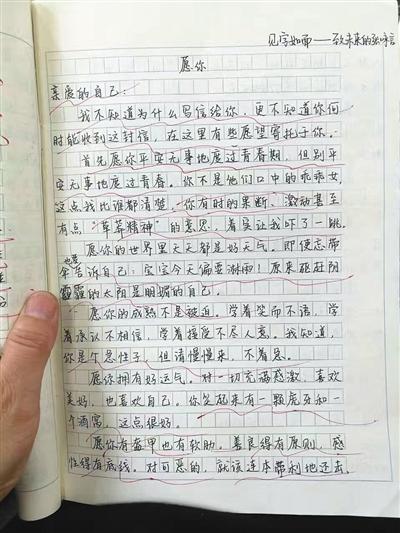 见字如面——致未来的张啸信
愿你
亲爱的自己：
我不知道为什么写信给你，更不知道你何
时能收到这封信，在这里有些愿望寄托于你。
首先愿你平安无事地度过青春期，但别平
安无事地度过青春。你不是他们口中的乖乖女，
这点我比谁都清楚。你有时的果断、激动甚至
有点“草莽精神”的意思，着实让我吓了一跳。
愿你的世界里天天都是好天气。即便忘带
也要
伞告诉自己：宝宝今天偏要淋雨！原来驱赶阴
霾的太阳是明媚的自己。
愿你的成熟不是被迫。学着笑而不语，学
着承认不相信，学着接受不尽人意。我知道，
你是个急性子，但请慢慢来，不着急。
愿你拥有好运气。对一切充满感激，喜欢
美好，也喜欢自己。你笑起来有一颗虎牙和一
个酒窝，这点很好。
愿你有盔甲也有软肋。善良得有原则，感
性得有底线。对可恶的，就该连本带利地还击，